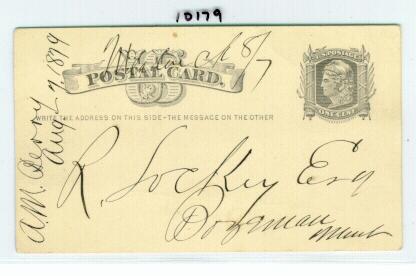 10179
A. M. Derry
Aug 7 1879
8/7
U.S. POSTAGE
US
POSTAL CARD.
ONE CENT
WRITE THE ADDRESS ON THIS SIDE - THE MESSAGE ON THE OTHER
R. Lockey Esq
Bozeman
Mont